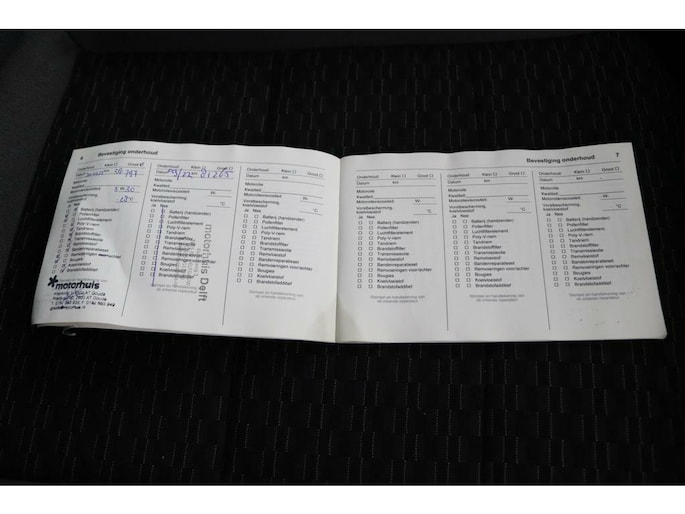 6 Bevestiging onderhoud
Onderhoud Klein Groot
Datum
Motorolie
Kwaliteit
Motorolieviscositeit 5 W- 30
Vorstbescherming,
koelvloeistof
Ja Nee
Batterij (handzender)
Pollenfilter
Luchtfilterelement
Poly-V-riem
Tandriem
Transmissieolie
Brandstoffilter
Remvloeistof
Bandenreparatieset
Remvoeringen voor/achter
Bougies
Koelvloeistof
Brandstofadditief
motorhuis
Onderhoud Klein Groot
Datum km 81265
Motorolie
Kwaliteit
Motorolieviscositeit W-
Vorstbescherming, °C
koelvloeistof
Ja Nee
Batterij (handzender)
Pollenfilter
Luchtfilterelement
Poly-V-riem
Tandriem
Transmissieolie
Brandstoffilter
Remvloeistof
Bandenreparatieset
Remvoeringen voor/achter
Bougies
Koelvloeistof
Brandstofadditief
motorhuis Delft
Onderhoud Klein Groot
Datum km
Motorolie
Kwaliteit
Motorolieviscositeit W-
Vorstbescherming, °C
koelvloeistof
Ja Nee
Batterij (handzender)
Pollenfilter
Luchtfilterelement
Poly-V-riem
Tandriem
Transmissieolie
Brandstoffilter
Remvloeistof
Bandenreparatieset
Remvoeringen voor/achter
Bougies
Koelvloeistof
Brandstofadditief
Stempel en handtekening van
de erkende reparateur
Bevestiging onderhoud 7
Onderhoud Klein Groot
Datum km
Motorolie
Kwaliteit
Motorolieviscositeit W-
Vorstbescherming, °C
koelvloeistof
Ja Nee
Batterij (handzender)
Pollenfilter
Luchtfilterelement
Poly-V-riem
Tandriem
Brandstoffilter
Transmissieolie
Remvloeistof
Bandenreparatieset
Remvoeringen voor/achter
Bougies
Koelvloeistof
Brandstofadditief
Stempel en handtekening van
de erkende reparateur
Onderhoud Klein Groot
Datum km
Motorolie
Kwaliteit
Motorolieviscositeit W-
Vorstbescherming, °C
koelvloeistof
Ja Nee
Batterij (handzender)
Pollenfilter
Luchtfilterelement
Poly-V-riem
Tandriem
Brandstoffilter
Transmissieolie
Remvloeistof
Bandenreparatieset
Remvoeringen voor/achter
Bougies
Koelvloeistof
Brandstofadditief
Stempel en handtekening van
de erkende reparateur
Onderhoud Klein Groot
Datum km
Motorolie
Kwaliteit
Motorolieviscositeit W-
Vorstbescherming, °C
koelvloeistof
Ja Nee
Batterij (handzender)
Pollenfilter
Luchtfilterelement
Poly-V-riem
Tandriem
Brandstoffilter
Transmissieolie
Remvloeistof
Bandenreparatieset
Remvoeringen voor/achter
Bougies
Koelvloeistof
Brandstofadditief
Stempel en handtekening van
de erkende reparateur